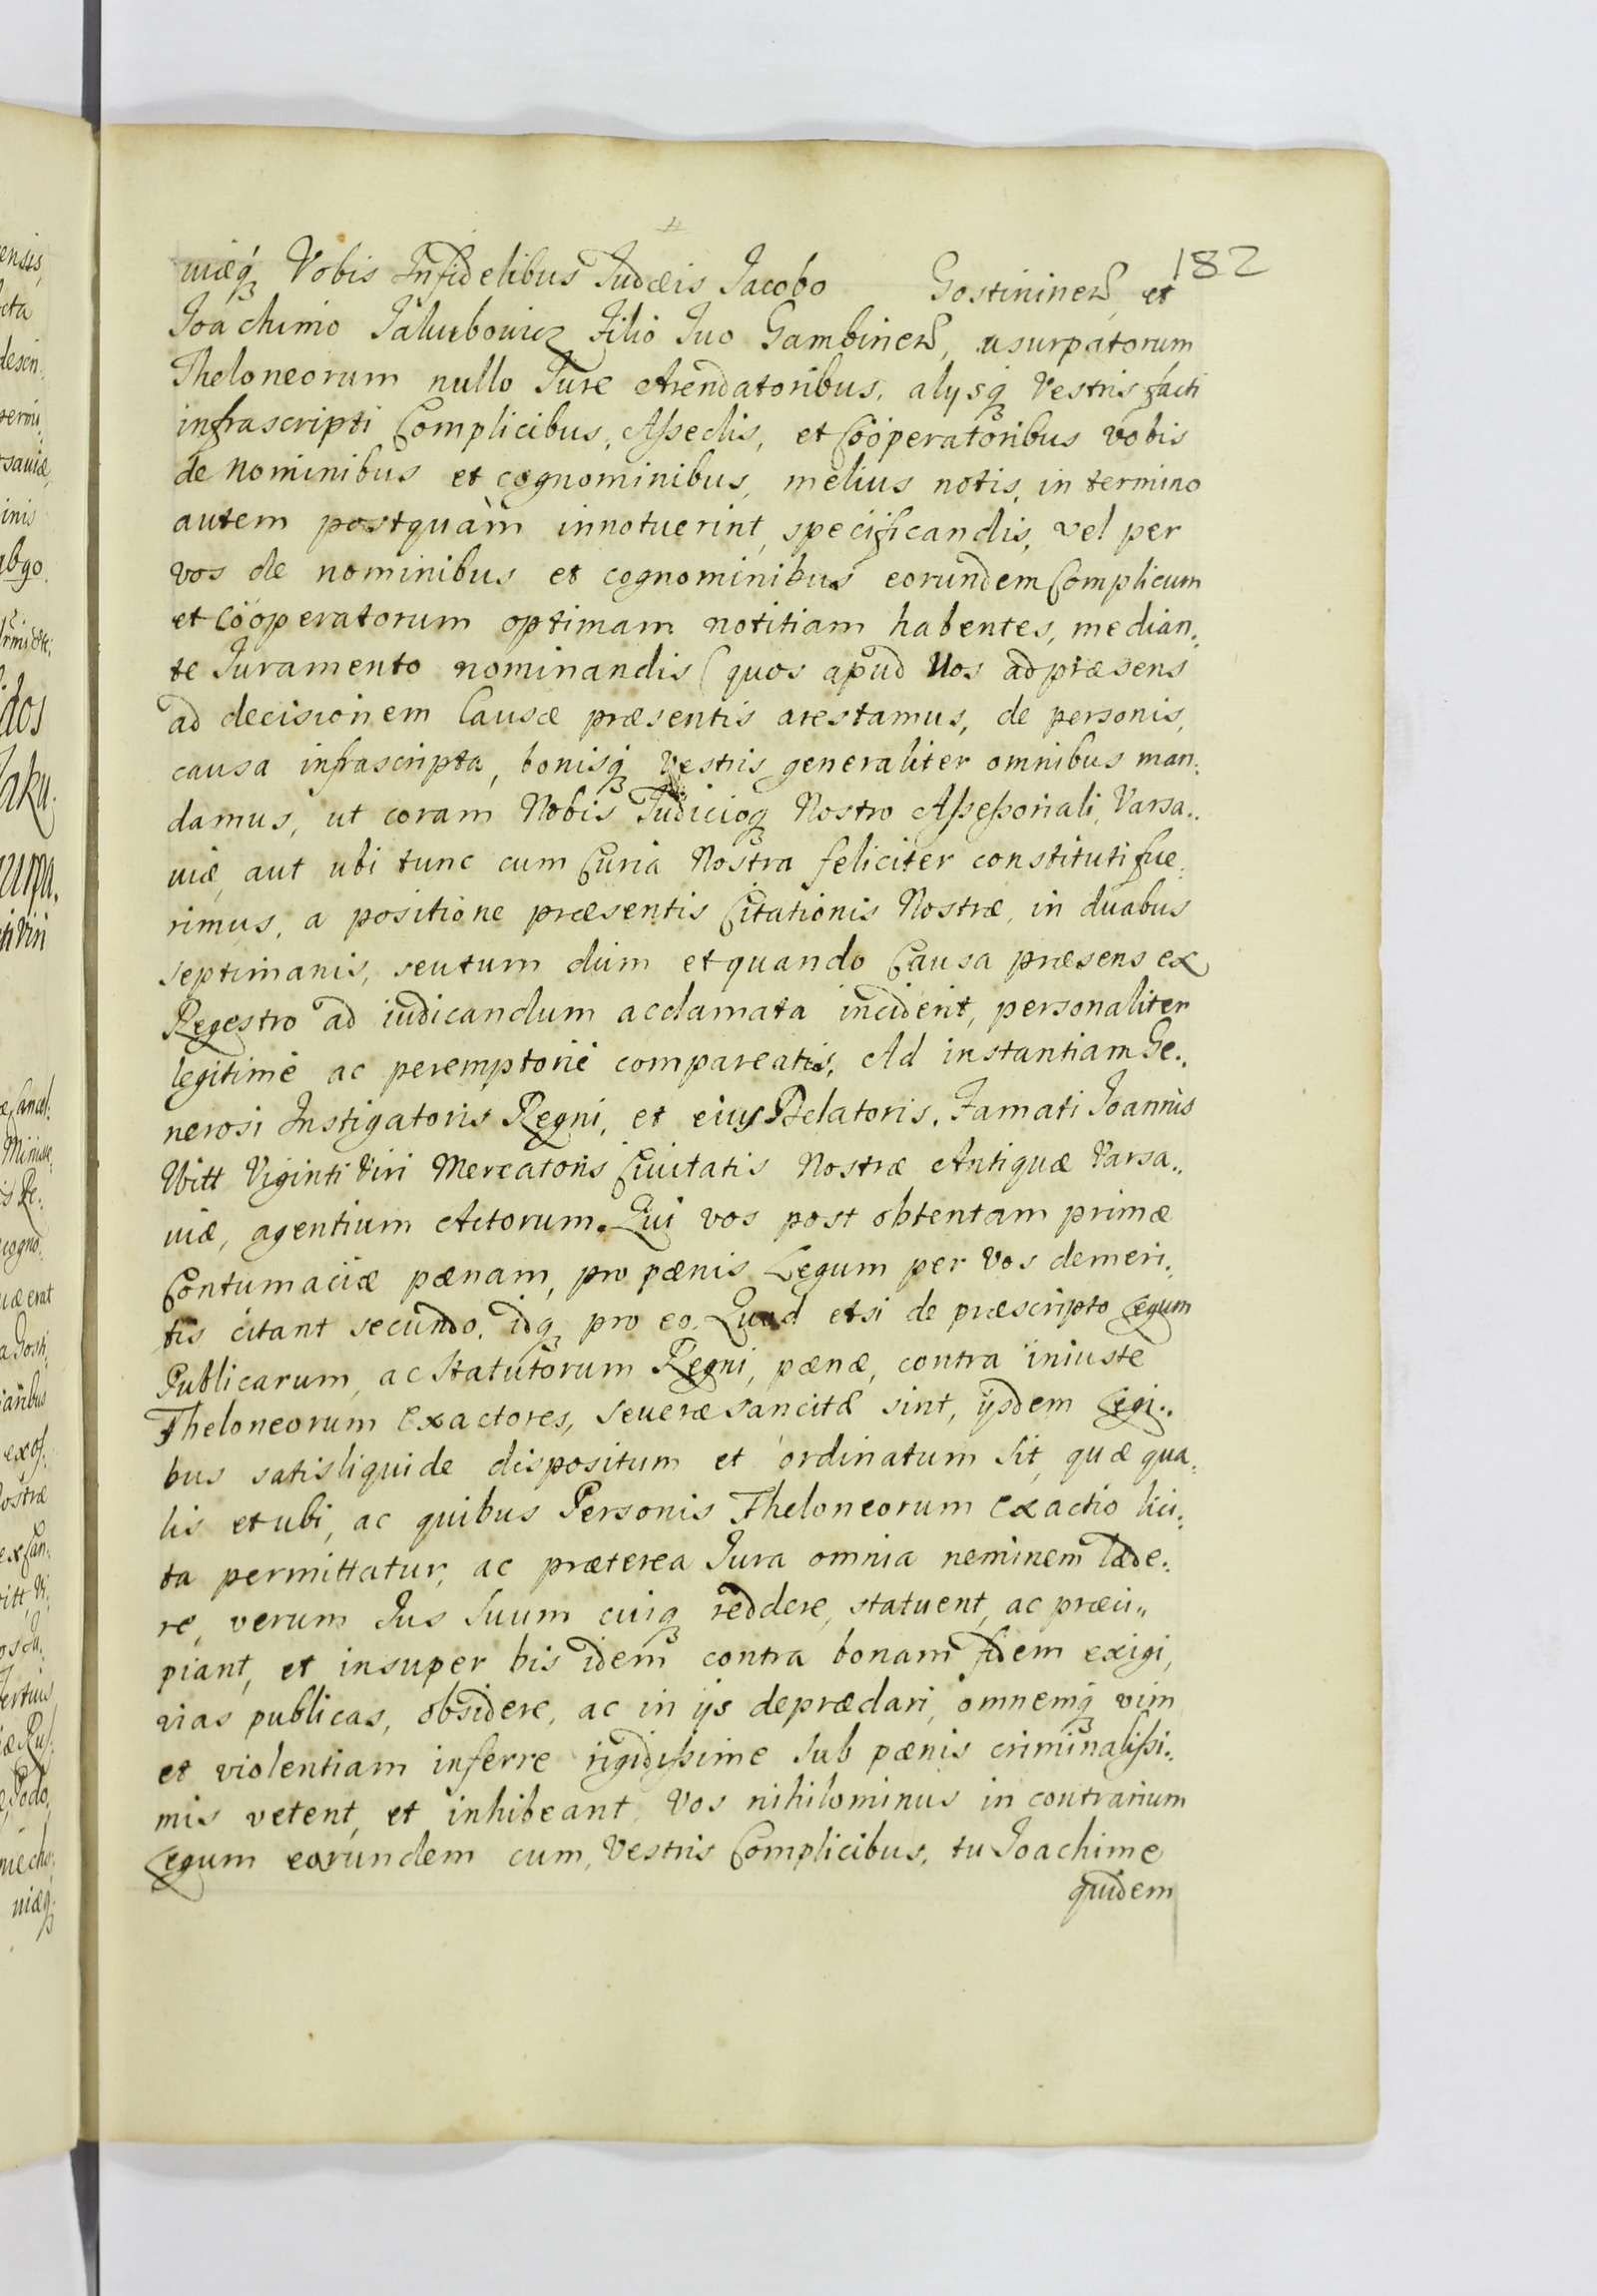 182
uiæq₃ Vobis Infidelibus Judæis Jacobo Gostininen, et
Joachimo Jalubowicz Filio Suo Gambinen, usurpatorum
Theloneorum nullo Jure Arendatoribus, alysq₃ Vestris facti
infrascripti Complicibus, Asseclis, et Cooperatoribus vobis
de Nominibus et cognominibus, melius notis, in termino
autem postquàm innotuerint, specificandis, vel per
vos de nominibus et cognominibus eorundem Complicum
et Cooperatorum optimam notitiam habentes, median:
te Juramento nominandis (quos apud Vos ad præsens
ad decisionem Causæ præsentis arestamus, de personis,
causa infrascripta, bonisq₃ vestris generaliter omnibus man:
damus, ut coram Nobis Judicioq₃ Nostro Assessoriali, Varsa:
uiæ, aut ubi tunc cum Curia Nostra feliciter constituti fue:
rimus, a positione præsentis Citationis Nostræ, in duabus
septimanis, seu tum dum et quando Causa præsens ex
Regestro ad iudicandum acclamata inciderit, personaliter
legitime ac peremptorie compareatis, Ad instantiam Ge:
nerosi Instigatoris Regni, et eius Delatoris, Famati Joannis
Witt Viginti Viri Mercatoris Ciuitatis Nostræ Antiquæ Varsa:
uiæ, agentium Actorum. Qui vos post obtentam primæ
Contumaciæ pænam, pro pænis Legum per Vos demeri:
tis citant secundo, idq₃ pro eo, Quod etsi de præscripto Legum
Publicarum, ac Statutorum Regni, pænæ, contra iniuste
Theloneorum Exactores, seueræ sancitæ sint, ijsdem Legi:
bus satis liquide dispositum et ordinatum sit, quæ qua:
lis et ubi, ac quibus Personis Theloneorum Exactio lici:
ta permittatur, ac præterea Jura omnia neminem læde:
re, verum Jus Suum cuiq₃ reddere, statuent, ac præci:
piant, et insuper bis idem contra bonam fidem exigi,
vias publicas, obsidere, ac in ijs deprædari, omnemq₃ vim
et violentiam inferre rigidissime sub pænis criminalissi:
mis vetent, et inhibeant, Vos nihilominus in contrarium
Legum earundem cum, Vestris Complicibus, tu Joachime
quidem